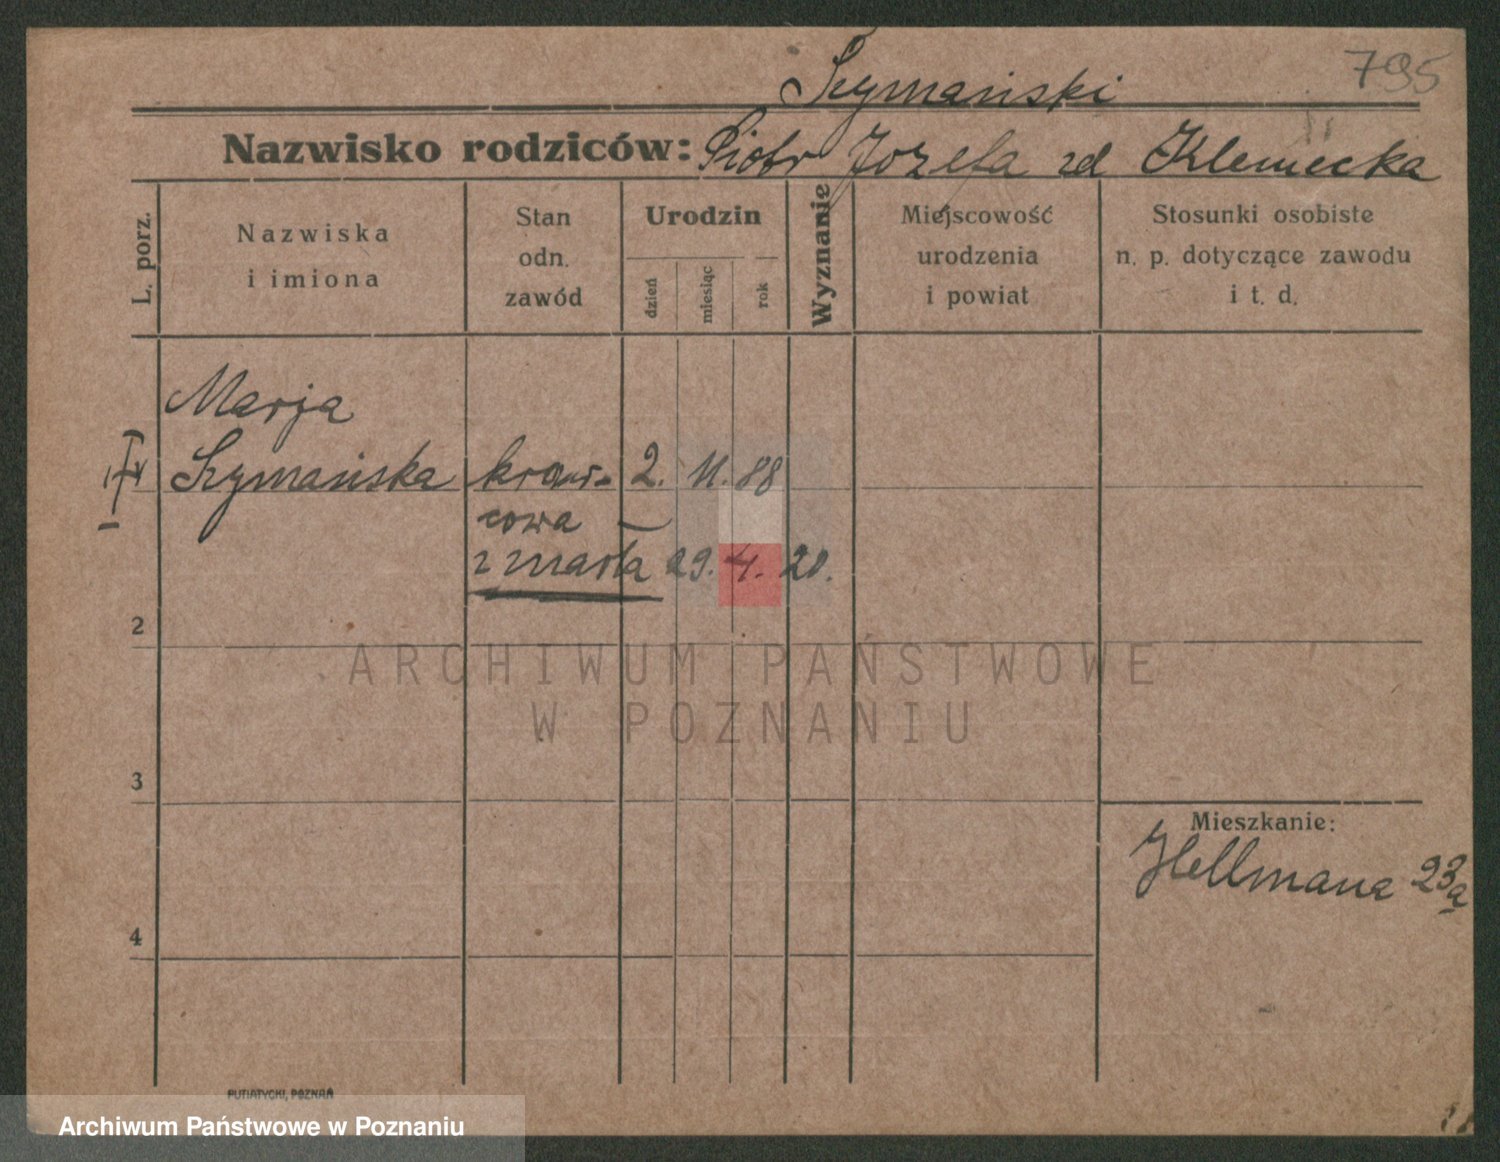 795
Szymański
Nazwisko rodziców: Piotr Jozefa zd Klemecka
L. porz.
Nazwiska
i imiona
Stan
odn.
zawód
Urodzin
dzień
miesiąc
rok
Wyznanie
Miejscowość
urodzenia
i powiat
Stosunki osobiste
n. p. dotyczące zawodu
i t. d.
Marja
Szymańska kraw- 2. 11. 88
cowa —
zmarła 29. 4. 20.
2
ARCHIWUM PAŃSTWOWE
W POZNANIU
3
Mieszkanie:
Hellmana 23a
4
PUTIATYCKI, POZNAŃ
Archiwum Państwowe w Poznaniu